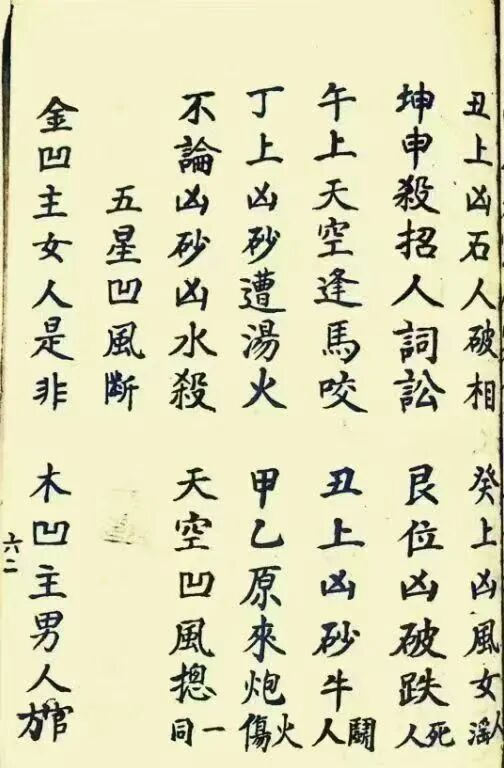 丑上凶石人破相 癸上凶風女人滛
坤申殺招人詞訟 艮位凶破跌死人
午上天空逢馬咬 丑上凶砂牛鬪人
丁上凶砂遭湯火 甲乙原來炮火傷
不論凶砂凶水殺 天空凹風摠一同
五星凹風斷
金凹主女人是非 木凹主男人官方
六二